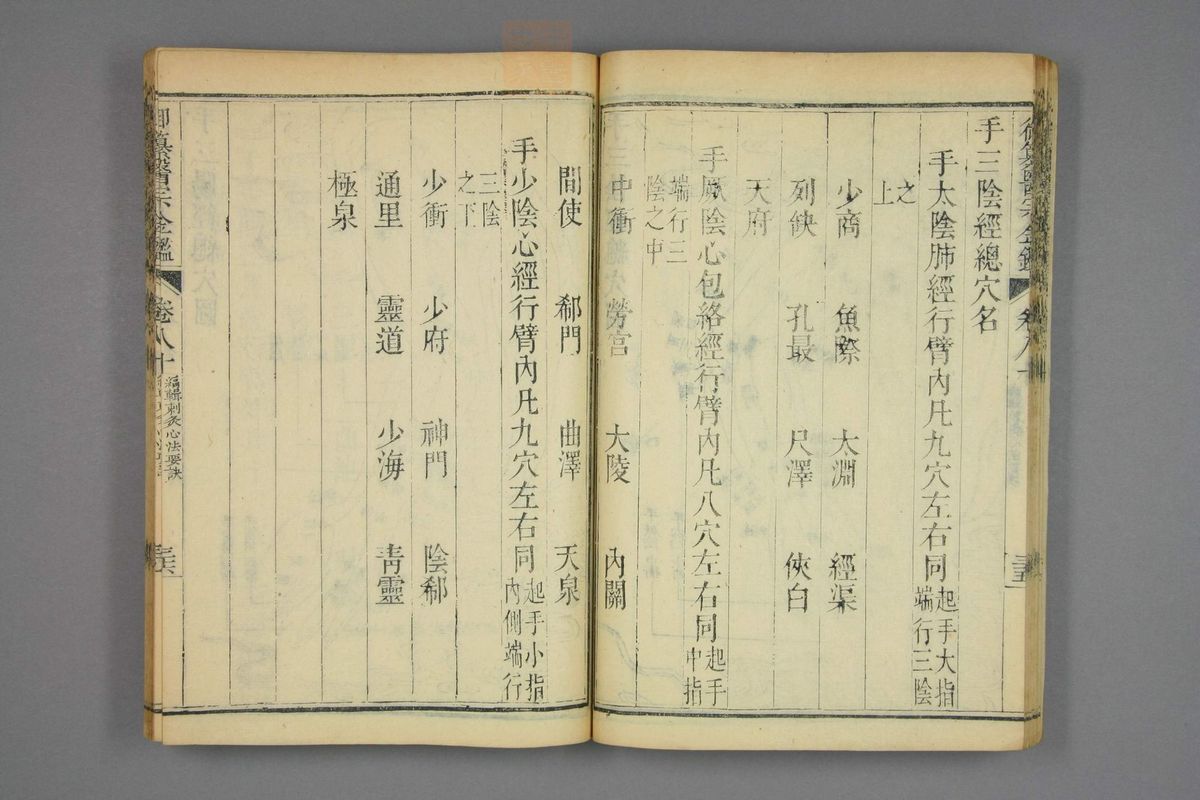 手三陰經總穴名
手太陰肺經行臂內凡九穴左右同起手大指端行三陰
之上
少商 魚際 太淵 經渠
列缺 孔最 尺澤 俠白
天府
手厥陰心包絡經行臂內凡八穴左右同起手中指
端行三陰之中
中衝 勞宮 大陵 內關
間使 郄門 曲澤 天泉
手少陰心經行臂內凡九穴左右同起手小指內側端行
三陰之下
少衝 少府 神門 陰郄
通里 靈道 少海 青靈
極泉
御纂醫宗金鑑 卷八十 編輯刺灸心法要訣 三六